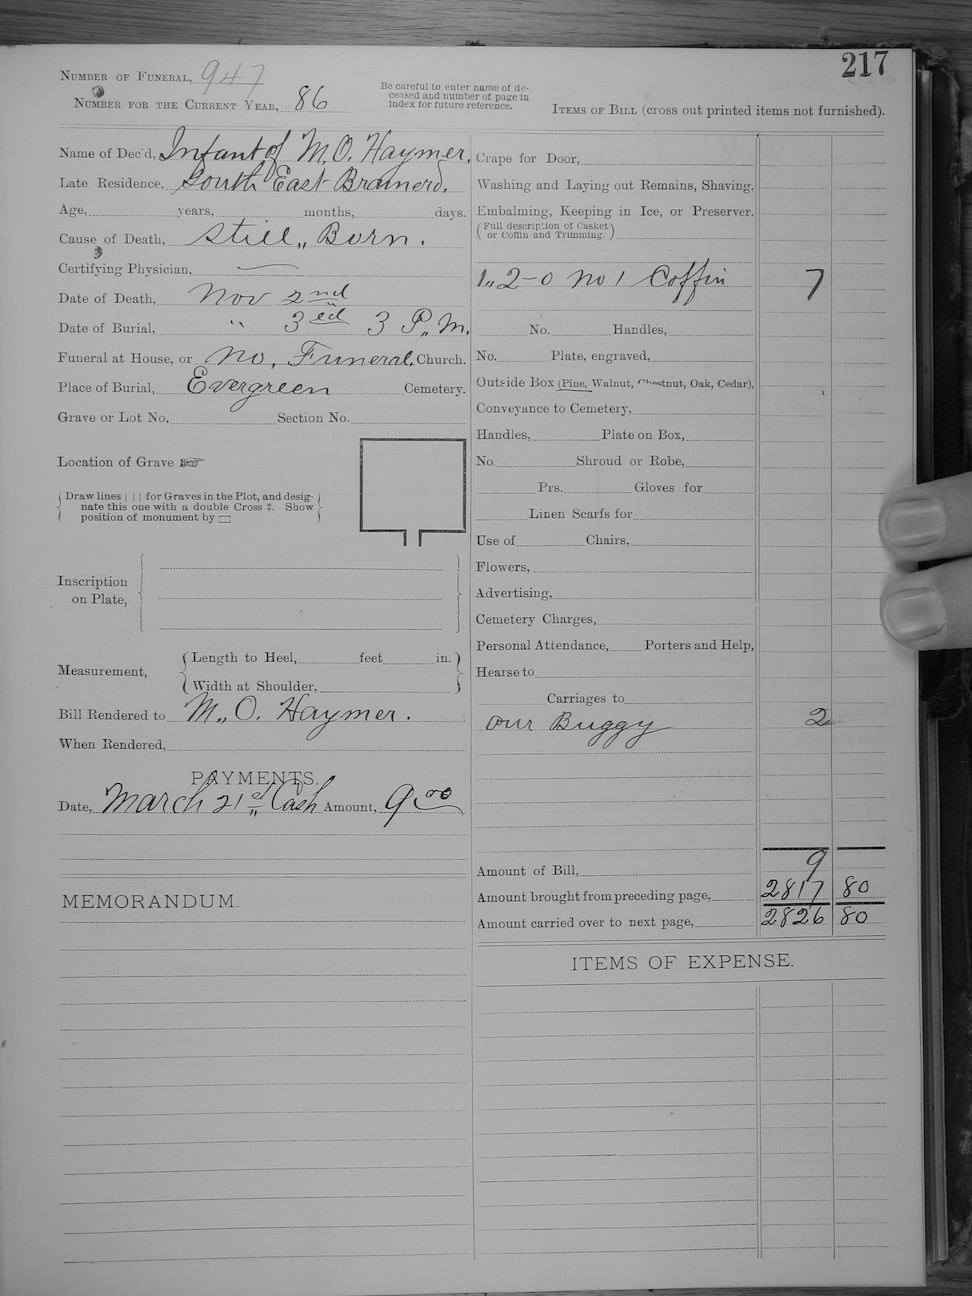 217
Number of Funeral, 947
Number for the Current Year, 86
Be careful to enter name of de-
ceased and number of page in
index for future reference.
Items of Bill (cross out printed items not furnished).
Name of Dec'd, Infant of M. O. Haymer.
Late Residence, South East Brainerd.
Age, years, months, days.
Cause of Death, Still „ Born.
Certifying Physician, —
Date of Death, Nov 2nd
Date of Burial, " 3ed 3 P.M.
Funeral at House, or no, Funeral, Church.
Place of Burial, Evergreen Cemetery.
Grave or Lot No, Section No.
Location of Grave ☞
Draw lines | | | for Graves in the Plot, and desig-
nate this one with a double Cross ‡. Show
position of monument by ▭
Inscription
on Plate,
Measurement,
Length to Heel, feet in.
Width at Shoulder,
Bill Rendered to M„ O. Haymer.
When Rendered,
PAYMENTS.
Date, March 21st Cash Amount, 9.00
MEMORANDUM.
Crape for Door,
Washing and Laying out Remains, Shaving,
Embalming, Keeping in Ice, or Preserver.
(Full description of Casket
or Coffin and Trimming.)
1„ 2-0 no 1 Coffin 7
No. Handles,
No. Plate, engraved,
Outside Box (Pine, Walnut, Chestnut, Oak, Cedar),
Conveyance to Cemetery,
Handles, Plate on Box,
No. Shroud or Robe,
Prs. Gloves for
Linen Scarfs for
Use of Chairs,
Flowers,
Advertising,
Cemetery Charges,
Personal Attendance, Porters and Help,
Hearse to
Carriages to
our Buggy 2
Amount of Bill, 9
Amount brought from preceding page, 2817 80
Amount carried over to next page, 2826 80
ITEMS OF EXPENSE.